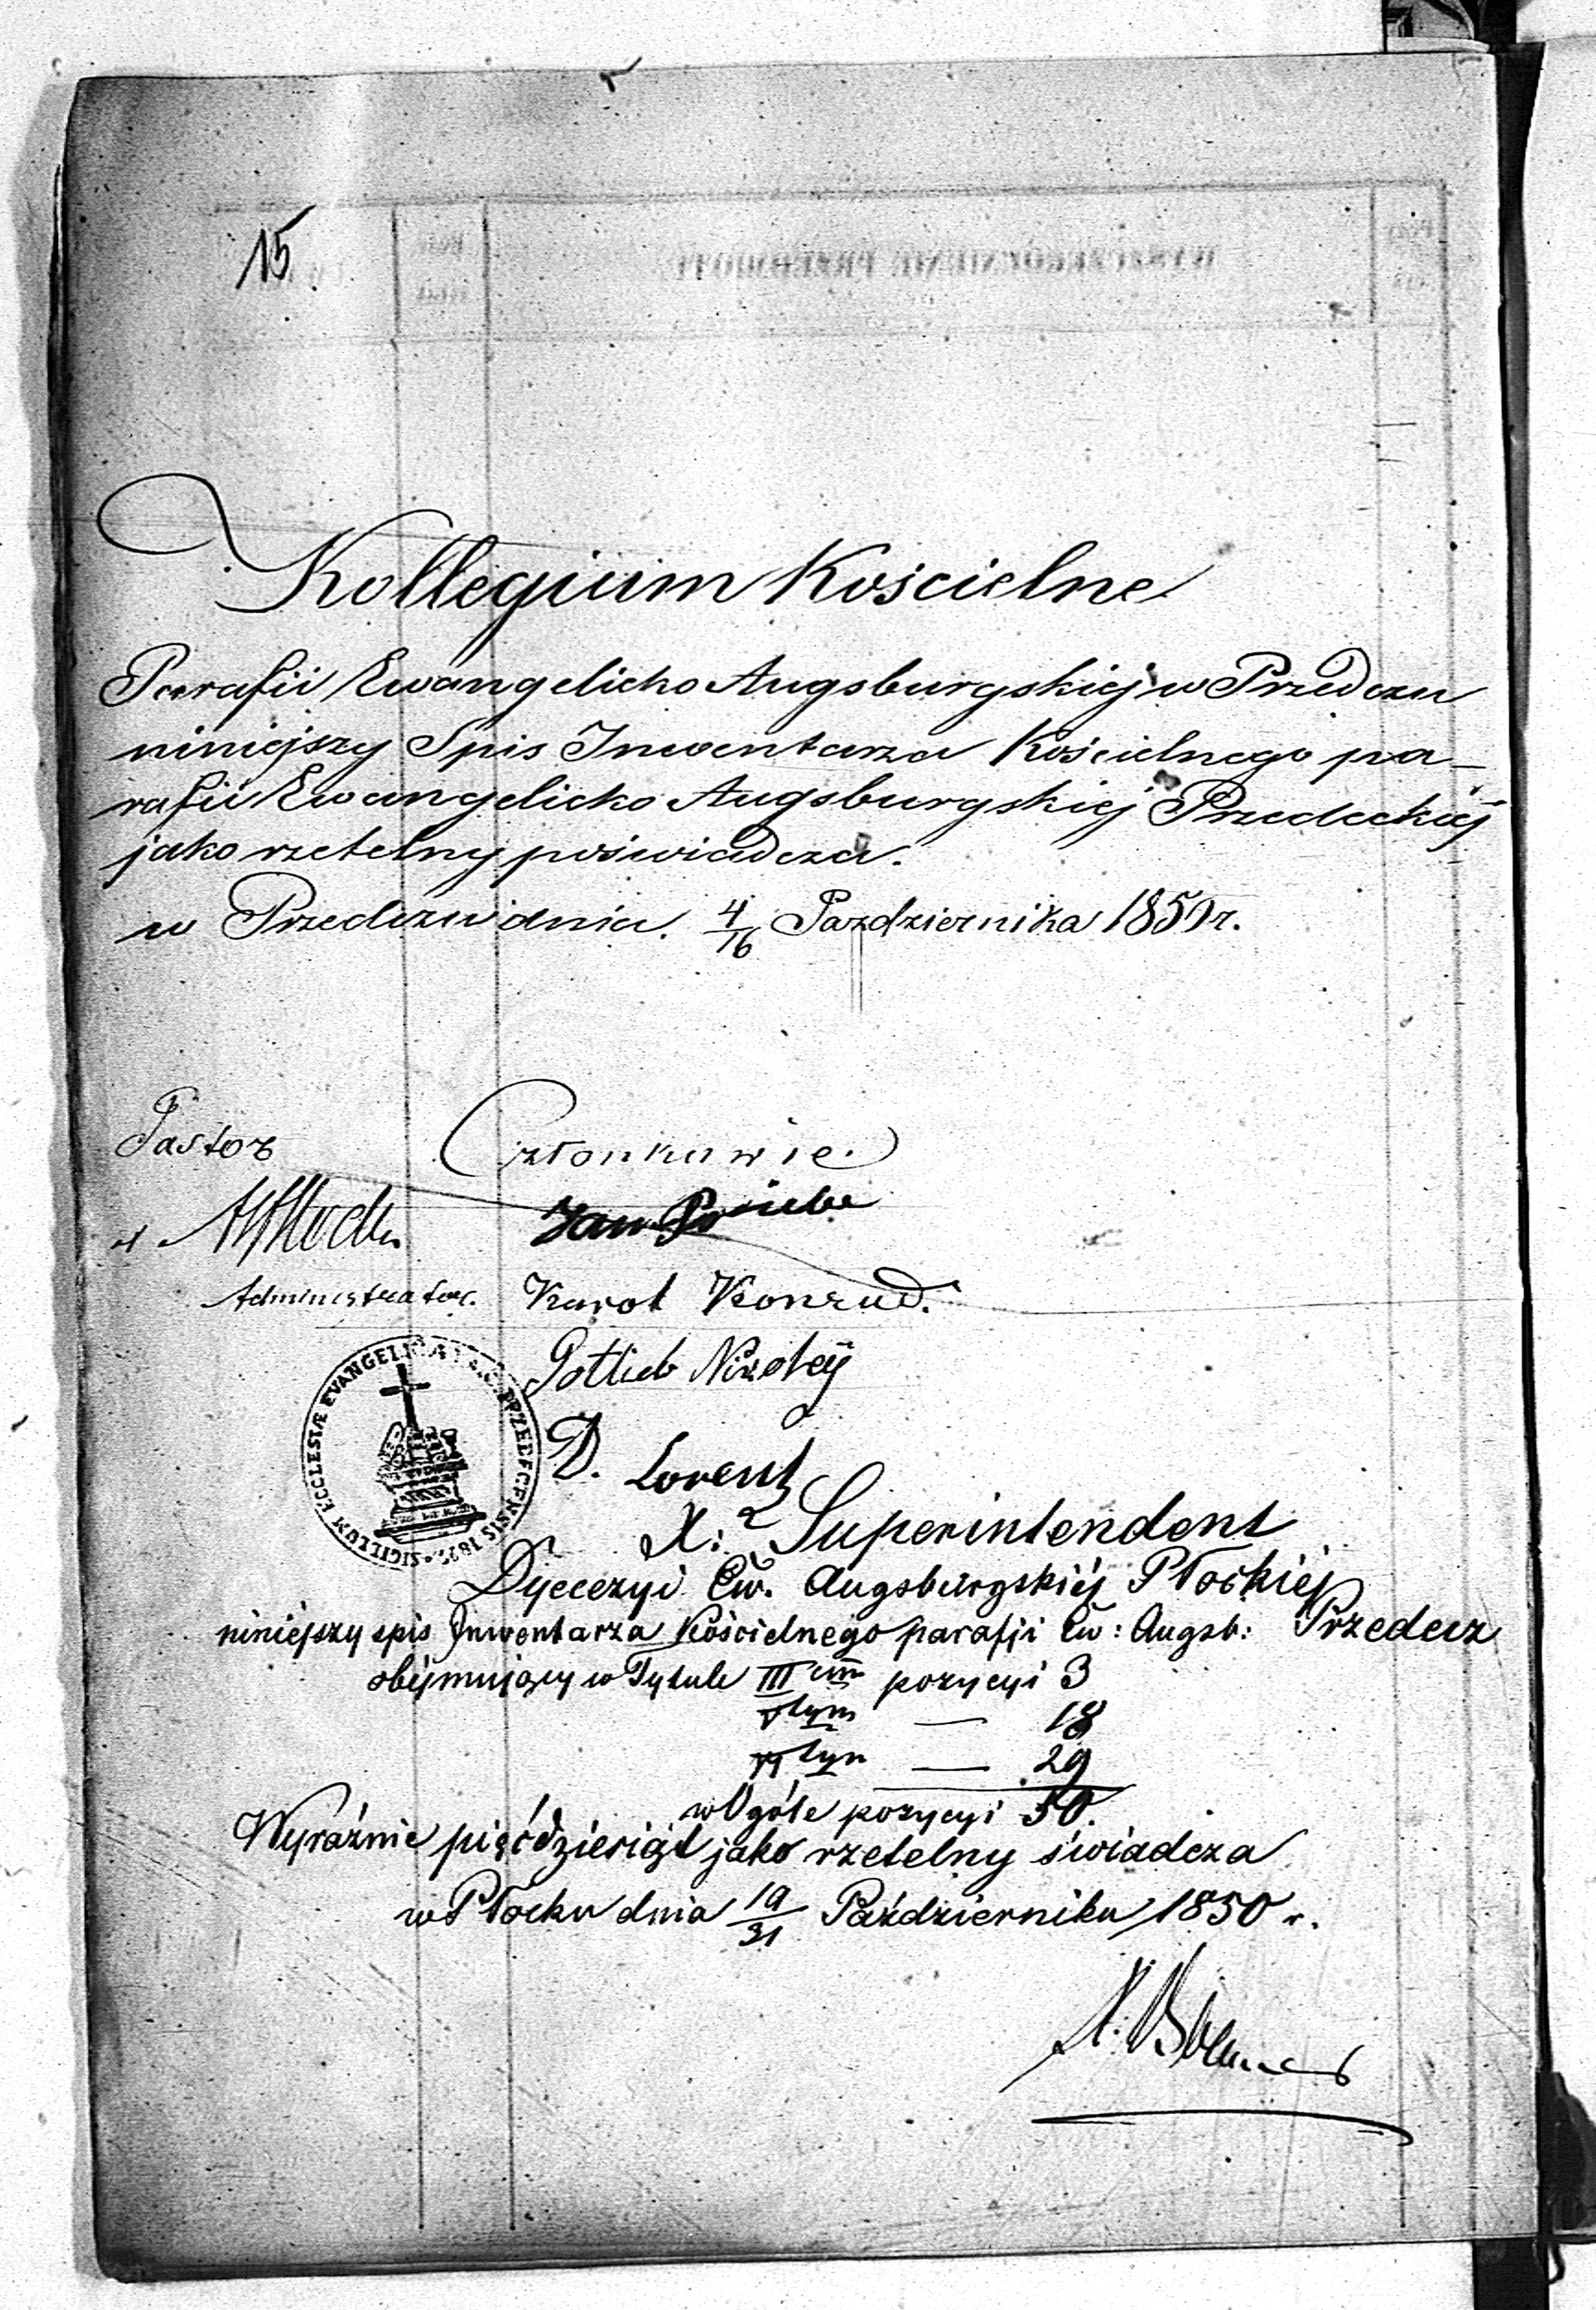 15.
WYSZCZEGÓLNIENIE PRZEDMIOTU
Kollegium Kościelne
Parafii Ewangelicko Augsburgskiej w Przedczu
niniejszy Spis Inwentarza Kościelnego pa-
rafii Ewangelicko Augsburgskiej Przedeckiej
jako rzetelny poświadcza.
w Przedczu dnia 4/16 Pazdziernika 1850 r.
Pastor
Członkowie.
Jan Priebe
Administrator.
Karol Konrad.
Gotlieb Nikoley
D. Lorentz
SIGILLUM ECCLESIÆ EVANGELICÆ PRZEDECENSIS
X: Superintendent
Dyecezyi Ew. Augsburgskiéj Płockiéj
niniéjszy spis Inwentarza Kościelnego parafji Ew: Augsb: Przedecz
obéjmujący w Tytule III cim pozycyi 3
V tym — 18
VI tym — 29
w Ogóle pozycyi 50.
Wyraźnie pięćdziesiąt jako rzetelny świadcza
w Płocku dnia 19/31 Października 1850 r.